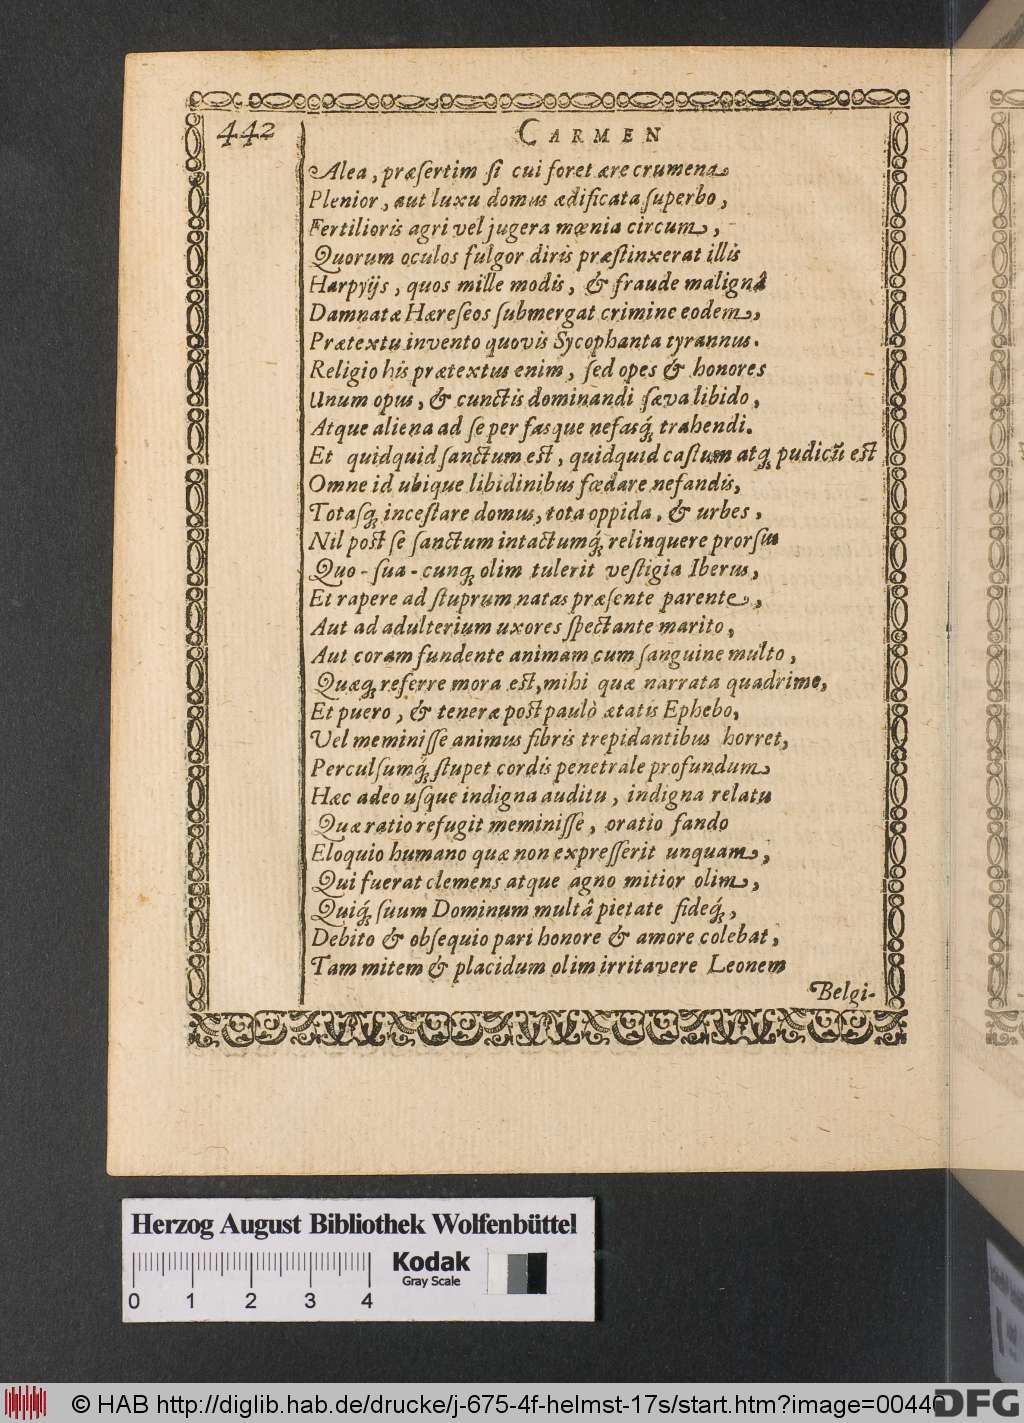 442
CARMEN
Alea, præſertim ſi cui foret ære crumena
Plenior, aut luxu domus ædificata ſuperbo,
Fertilioris agri vel jugera mœnia circum,
Quorum oculos fulgor diris præſtinxerat illis
Harpyijs, quos mille modis, & fraude malignâ
Damnatæ Hæreſeos ſubmergat crimine eodem,
Prætextu invento quovis Sycophanta tyrannus.
Religio his prætextus enim, ſed opes & honores
Unum opus, & cunctis dominandi ſæva libido,
Atque aliena ad ſe per fasque nefasq́; trahendi.
Et quidquid ſanctum est, quidquid caſtum atq; pudicũ est
Omne id ubique libidinibus fœdare nefandis,
Totaſq; inceſtare domus, tota oppida, & urbes,
Nil post ſe ſanctum intactumq́; relinquere prorſus
Quo-ſua-cunq; olim tulerit veſtigia Iberus,
Et rapere ad ſtuprum natas præſente parente,
Aut ad adulterium uxores ſpectante marito,
Aut coram fundente animam cum ſanguine multo,
Quæq; referre mora est, mihi quæ narrata quadrimo,
Et puero, & teneræ post paulò ætatis Ephebo,
Vel meminiſſe animus fibris trepidantibus horret,
Perculſumq́; ſtupet cordis penetrale profundum
Hæc adeo uſque indigna auditu, indigna relatu
Quæ ratio refugit meminiſſe, oratio fando
Eloquio humano quæ non expreſſerit unquam,
Qui fuerat clemens atque agno mitior olim,
Quiq́; ſuum Dominum multâ pietate fideq́;,
Debito & obſequio pari honore & amore colebat,
Tam mitem & placidum olim irritavere Leonem
Belgi-
Herzog August Bibliothek Wolfenbüttel
Kodak
Gray Scale
0 1 2 3 4
© HAB http://diglib.hab.de/drucke/j-675-4f-helmst-17s/start.htm?image=00440
DFG